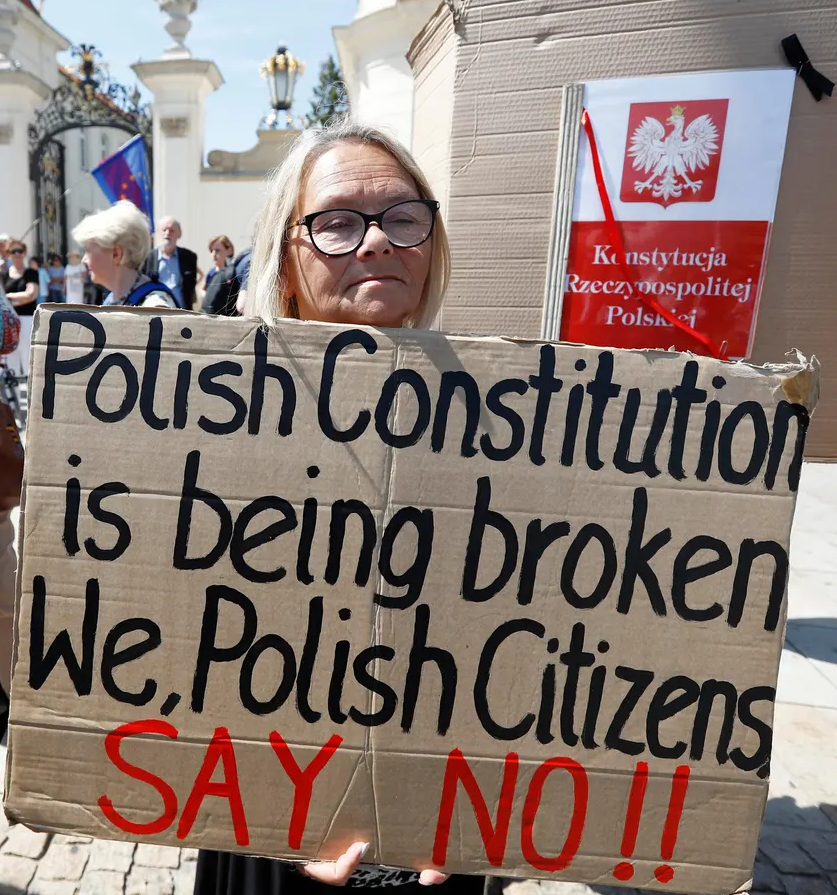 Konstytucja
Rzeczypospolitej
Polskiej
Polish Constitution
is being broken
We, Polish Citizens,
SAY NO!!